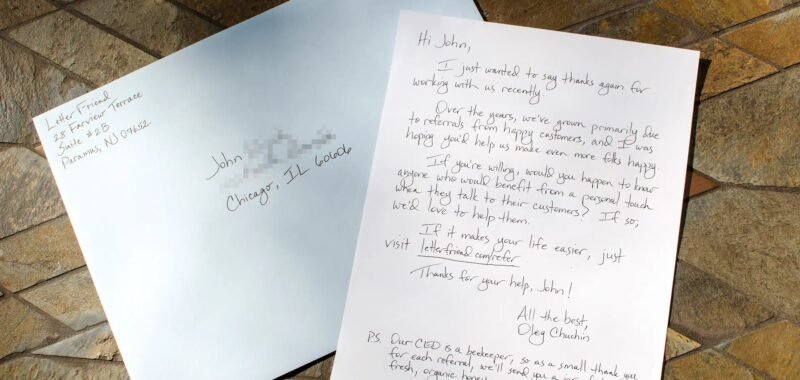 Letter Friend
28 Farview Terrace
Suite #2B
Paramus, NJ 07652
John
Chicago, IL 60606
Hi John,
I just wanted to say thanks again for
working with us recently.
Over the years, we've grown primarily due
to referrals from happy customers, and I was
hoping you'd help us make even more folks happy.
If you're willing, would you happen to know
anyone who would benefit from a personal touch
when they talk to their customers? If so,
we'd love to help them.
If it makes your life easier, just
visit letterfriend.com/refer
Thanks for your help, John!
All the best,
Oleg Chuchin
PS. Our CEO is a beekeeper, so as a small thank you
for each referral, we'll send you a jar of
fresh, organic honey